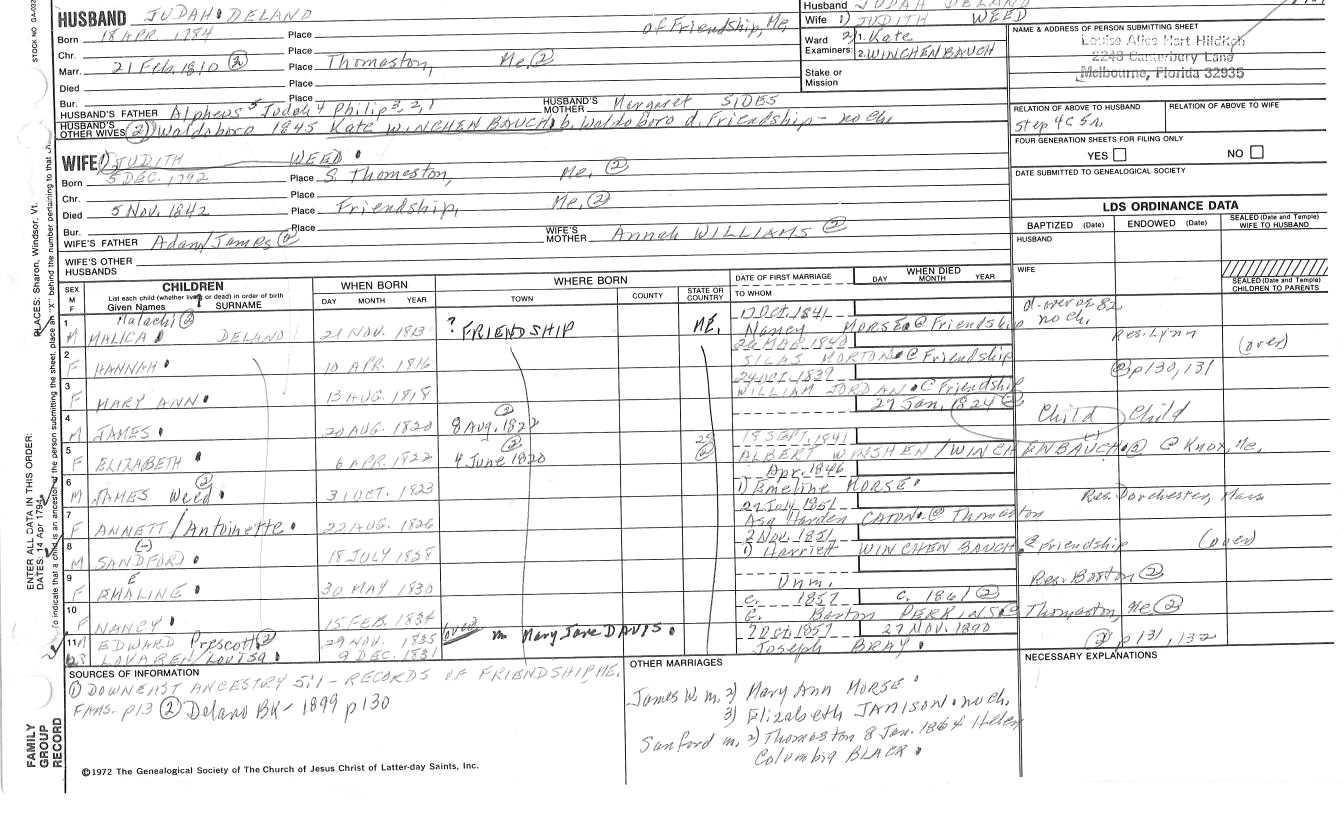 STOCK NO. GA-022
HUSBAND JUDAH DELAND
of Friendship, Me,
Born 18 APR. 1784 Place
Chr. Place
Marr. 21 Feb. 1810 ② Place Thomaston, Me, ②
Died Place
Bur. Place
HUSBAND'S FATHER Alpheus 5 Judah 4 Philip 3, 2, 1 HUSBAND'S MOTHER Margaret SIDES
HUSBAND'S OTHER WIVES ② Waldoboro 1845 Kate WINCHENBAUCH b. Waldoboro d. Friendship - no ch.
Husband JUDAH DELAND
Wife 1) JUDITH WEED
Ward 2) 1. Kate
Examiners: 2. WINCHENBAUCH
Stake or
Mission
NAME & ADDRESS OF PERSON SUBMITTING SHEET
Louise Alice Hart Hilditch
2248 Canterbury Lane
Melbourne, Florida 32935
RELATION OF ABOVE TO HUSBAND RELATION OF ABOVE TO WIFE
FOUR GENERATION SHEETS FOR FILING ONLY
YES NO
DATE SUBMITTED TO GENEALOGICAL SOCIETY
WIFE 1) JUDITH WEED
Born 5 DEC. 1792 Place S. Thomaston, Me, ②
Chr. Place
Died 5 Nov. 1842 Place Friendship, Me, ②
Bur. Place
WIFE'S FATHER Adam/James ② WIFE'S MOTHER Annah WILLIAMS ②
WIFE'S OTHER
HUSBANDS
LDS ORDINANCE DATA
BAPTIZED (Date) ENDOWED (Date) SEALED (Date and Temple) WIFE TO HUSBAND
HUSBAND
WIFE
SEALED (Date and Temple) CHILDREN TO PARENTS
SEX M F CHILDREN WHEN BORN WHERE BORN DATE OF FIRST MARRIAGE WHEN DIED
List each child (whether living or dead) in order of birth
Given Names SURNAME DAY MONTH YEAR TOWN COUNTY STATE OR COUNTRY TO WHOM DAY MONTH YEAR
1 Malachi ② 17 OCT. 1841
M MALICA DELAND 21 NOV. 1813 ? FRIENDSHIP ME. Nancy MORSE @ Friendship no ch. Res. Lynn (over)
2
F HANNAH 10 APR. 1816 SILAS MORTON @ Friendship ② p130, 131
3 24 OCT. 1839
F MARY ANN 13 AUG. 1818 WILLIAM JORDAN @ Friendship
4 ② 27 Jan, 1824 ② Child Child
M JAMES 20 AUG. 1820 8 Aug. 1822
5 ② 18 SEPT. 1841
F ELIZABETH 6 APR. 1822 4 June 1820 ALBERT WINSHEN/WINCHENBAUCH ② @ Knox, Me.
6 ② Apr. 1846
M JAMES Weed 31 OCT. 1823 1) Emeline MORSE Res. Dorchester, Mass
7 27 July 1851
F ANNETT/Antoinette 22 AUG. 1826 Asa Harden CATON @ Thomaston
8 (-) 2 Nov. 1851
M SANDFORD 18 JULY 1828 1) Harriett WINCHENBAUCH @ Friendship (over)
9 E
F EMALINE 30 MAY 1830 Unm. Res. Boston ②
10 c. 1857 c. 1861 ②
F NANCY 15 FEB. 1834 G. Barton PERKINS @ Thomaston, Me ②
11 M EDWARD Prescott ② 29 NOV. 1835 over m Mary Jane DAVIS. 7 Oct. 1857 27 NOV. 1890 ② p131, 132
LOVAREN/Lovisa 9 DEC. 1831 Joseph BRAY
SOURCES OF INFORMATION
① DOWNEAST ANCESTRY 5:1 - RECORDS OF FRIENDSHIP, ME.
FAMS. p13 ② Delano BK - 1899 p130
OTHER MARRIAGES
James W. m. 2) Mary Ann MORSE
3) Elizabeth JANISON. no ch.
Sanford m. 2) Thomaston 8 Jan. 1864 Helen
Columbia BLACK.
NECESSARY EXPLANATIONS
©1972 The Genealogical Society of The Church of Jesus Christ of Latter-day Saints, Inc.
FAMILY
GROUP
RECORD
ENTER ALL DATA IN THIS ORDER:
DATES: 14 Apr 1794
PLACES: Sharon, Windsor, Vt.
To indicate that a child is an ancestor of the person submitting the sheet, place an "X" behind the number pertaining to that